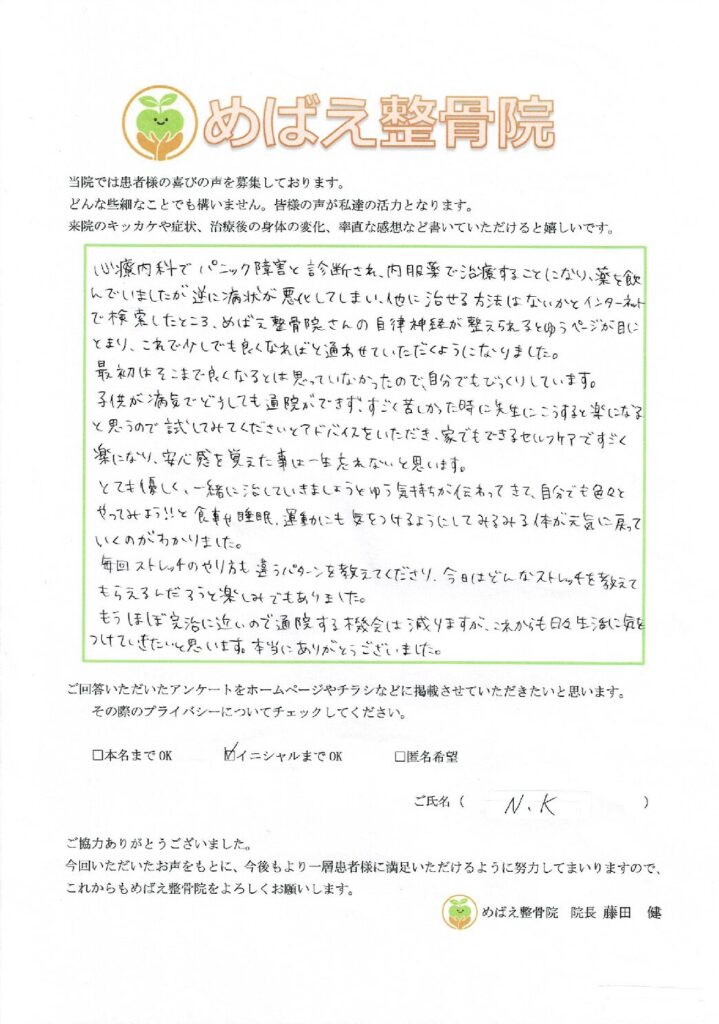 めばえ整骨院
当院では患者様の喜びの声を募集しております。
どんな些細なことでも構いません。皆様の声が私達の活力となります。
来院のキッカケや症状、治療後の身体の変化、率直な感想など書いていただけると嬉しいです。
心療内科でパニック障害と診断され、内服薬で治療することになり、薬を飲
んでいましたが逆に病状が悪化してしまい、他に治せる方法はないかとインターネット
で検索したところ、めばえ整骨院さんの自律神経が整えられるとゆうページが目に
とまり、これで少しでも良くなればと通わせていただくようになりました。
最初はそこまで良くなるとは思っていなかったので、自分でもびっくりしています。
子供が病気でどうしても通院ができず、すごく苦しかった時に先生にこうすると楽になる
と思うので試してみてくださいとアドバイスをいただき、家でもできるセルフケアですごく
楽になり、安心感を覚えた事は一生忘れないと思います。
とても優しく、一緒に治していきましょうとゆう気持ちが伝わってきて、自分でも色々と
やってみよう!!と食事や睡眠、運動にも気をつけるようにしてみるみる体が元気に戻って
いくのがわかりました。
毎回ストレッチのやり方も違うパターンを教えてくださり、今日はどんなストレッチを教えて
もらえるんだろうと楽しみでもありました。
もうほぼ完治に近いので通院する機会は減りますが、これからも日々生活に気を
つけていきたいと思います。本当にありがとうございました。
ご回答いただいたアンケートをホームページやチラシなどに掲載させていただきたいと思います。
その際のプライバシーについてチェックしてください。
□本名までOK ☑イニシャルまでOK □匿名希望
ご氏名 ( N.K )
ご協力ありがとうございました。
今回いただいたお声をもとに、今後もより一層患者様に満足いただけるように努力してまいりますので、
これからもめばえ整骨院をよろしくお願いします。
めばえ整骨院 院長 藤田 健